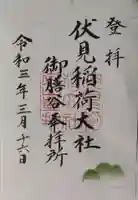 登拝
伏見稲荷大社
御膳谷奉拝所
令和三年三月十六日